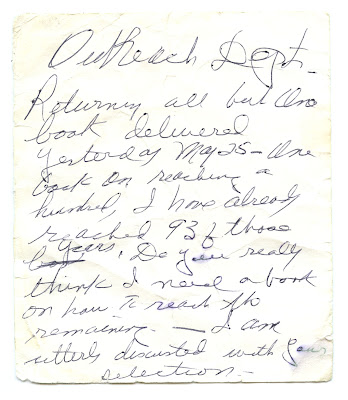 Outreach Dept.
Returning all but one
book delivered
yesterday May 25 - One
book on reaching a
hundred, I have already
reached 93 of those
years. Do you really
think I need a book
on how to reach the
remaining. — I am
utterly discusted with your
selection. -